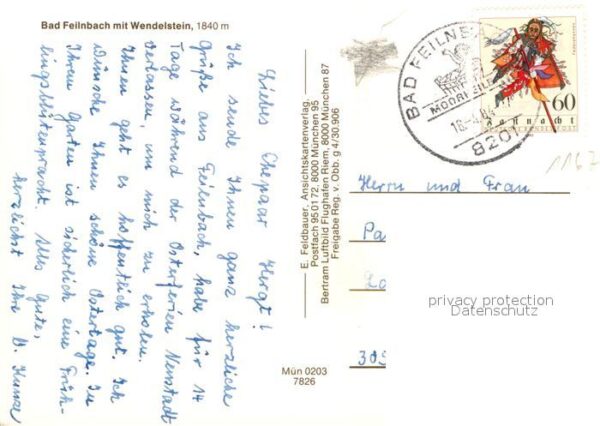 Bad Feilnbach mit Wendelstein, 1840 m
Liebes Ehepaar Hergt!
Ich sende Ihnen ganz herzliche
Grüße aus Feilnbach, habe für 14
Tage während der Osterferien Neustadt
verlassen, um mich zu erholen.
Ihnen geht es hoffentlich gut. Ich
wünsche Ihnen schöne Ostertage. In
Ihrem Garten ist sicherlich eine Früh-
lingsblütenpracht. Alles Gute,
herzlichst Ihre
E. Feldbauer, Ansichtskartenverlag,
Postfach 95 01 72, 8000 München 95
Bertram Luftbild Flughafen Riem, 8000 München 87
Freigabe Reg. v. Obb. g 4/30.906
Mün 0203
7826
BAD FEILNB
8201
60
Fastnacht
DEUTSCHE BUNDESPOST
1162
Herrn und Frau
Pa
privacy protection
Datenschutz